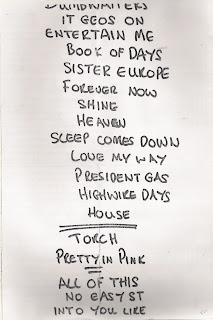 DUMBWAITERS
IT GEOS ON
ENTERTAIN ME
BOOK OF DAYS
SISTER EUROPE
FOREVER NOW
SHINE
HEAVEN
SLEEP COMES DOWN
LOVE MY WAY
PRESIDENT GAS
HIGHWIRE DAYS
HOUSE
TORCH
PRETTY IN PINK
ALL OF THIS
NO EASY ST
INTO YOU LIKE